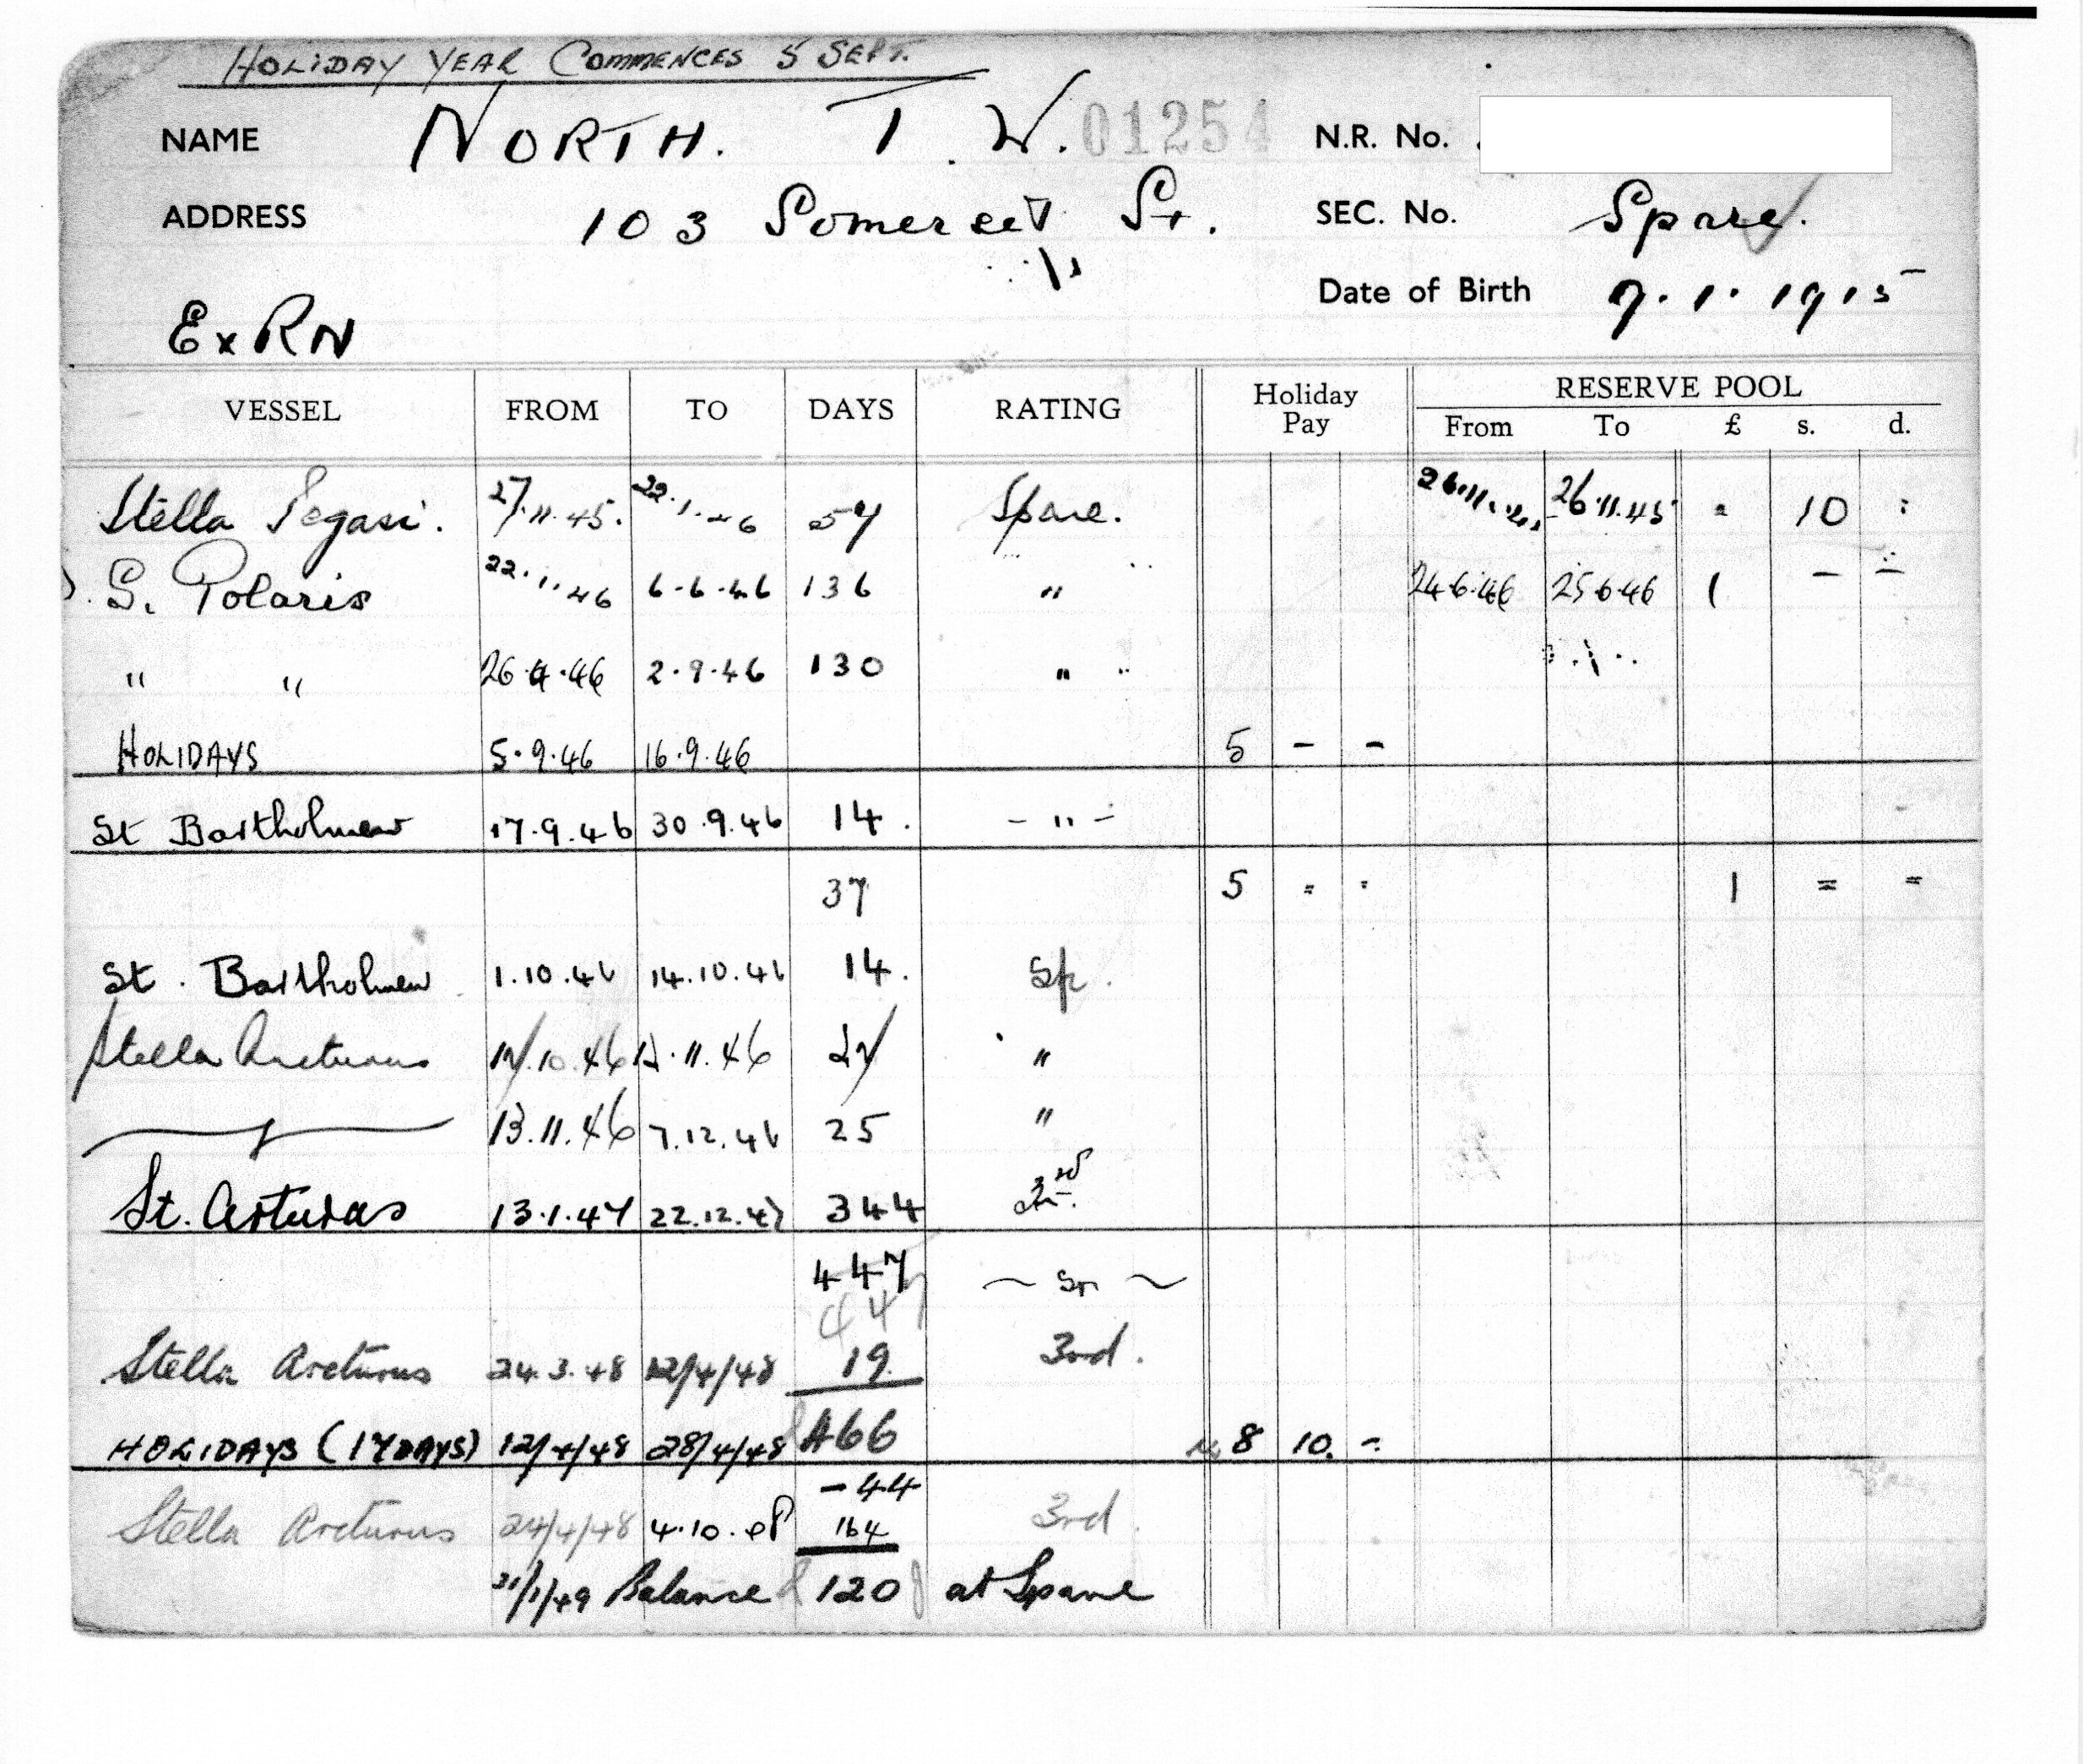 HOLIDAY YEAR COMMENCES 5 SEPT.
NAME NORTH. T. W. 01254 N.R. No.
ADDRESS 103 Somerset St. SEC. No. Spare.
Date of Birth 9.1.1915
Ex RN
VESSEL FROM TO DAYS RATING Holiday Pay RESERVE POOL
From To £ s. d.
Stella Pegasi. 27.11.45. 22.1.46 57 Spare. 26.11.45 26.11.45 " 10 :
S. Polaris 22.1.46 6.6.46 136 " 24.6.46 25.6.46 1 - -
" " 26.4.46 2.9.46 130 "
HOLIDAYS 5.9.46 16.9.46 5 - -
St Bartholmew 17.9.46 30.9.46 14. - " -
37 5 " " 1 = =
St. Bartholmew 1.10.46 14.10.46 14. Sp.
Stella Arcturus 10.46 11.46 "
13.11.46 7.12.46 25 "
St. Arturas 13.1.47 22.12.47 344 3rd
447 ~ ~
447
Stella Arcturus 24.3.48 12/4/48 19. 3rd.
HOLIDAYS (17 DAYS) 12/4/48 28/4/48 466 8 10. -
-44
Stella Arcturus 24/4/48 4.10.48 164 3rd.
31/1/49 Balance 120 at Spare